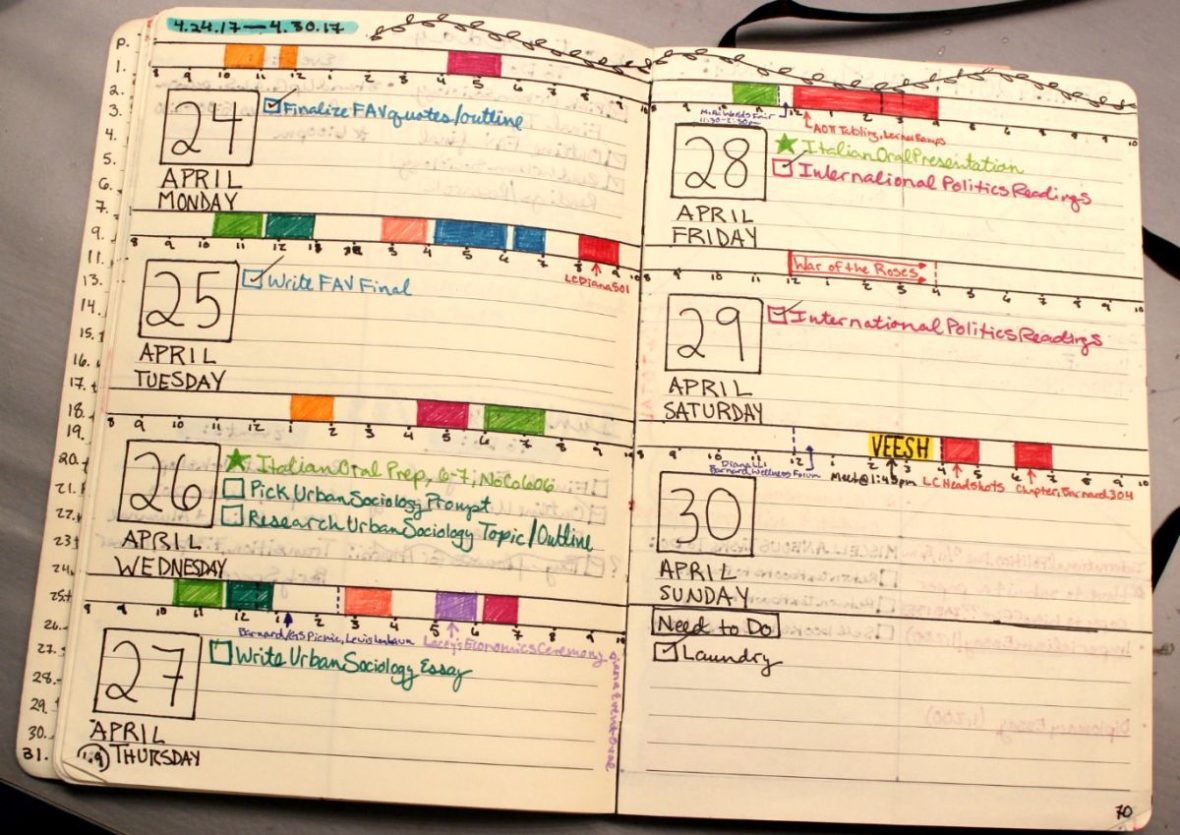 4.24.17 — 4.30.17
P.
1.
2.
3.
4.
5.
6.
7.
9.
11.
13.
14.
15.
16.
17.
18.
19.
20.
21.
22.
23.
24.
25.
26.
27.
28.
29.
30.
31.
8 9 10 11 12 1 2 3 4 5 6 7 8 9 10
24
APRIL
MONDAY
Finalize FAV quotes/outline
8 9 10 11 12 1 3 4 5 6 7 8 9 10
LC Diana 501
25
APRIL
TUESDAY
Write FAV Final
8 9 10 11 12 1 2 3 4 5 6 7 8 9 10
26
APRIL
WEDNESDAY
Italian Oral Prep, 6-7, NoCo 606
Pick Urban Sociology Prompt
Research Urban Sociology Topic/Outline
8 9 10 11 12 1 2 3 4 5 6 7 8 9 10
Barnard/GS Picnic, Lewis Lawn
Lacey's Economics Ceremony
27
APRIL
THURSDAY
Write Urban Sociology Essay
8 9 10 11 12 1 2 3 4 5 6 7 8 9 10
11:30-2:30pm
AOΠ Tabling, Lerner Ramps
28
APRIL
FRIDAY
Italian Oral Presentation
International Politics Readings
8 9 10 11 12 1 2 3 4 5 6 7 8 9 10
War of the Roses
29
APRIL
SATURDAY
International Politics Readings
8 9 10 11 12 1 2 3 4 5 6 7 8 9 10
VEESH
Diana LL
Barnard Wellness Forum
Meet @ 1:45pm
LC Headshots
Chapter, Barnard 304
30
APRIL
SUNDAY
Need to Do
Laundry
70